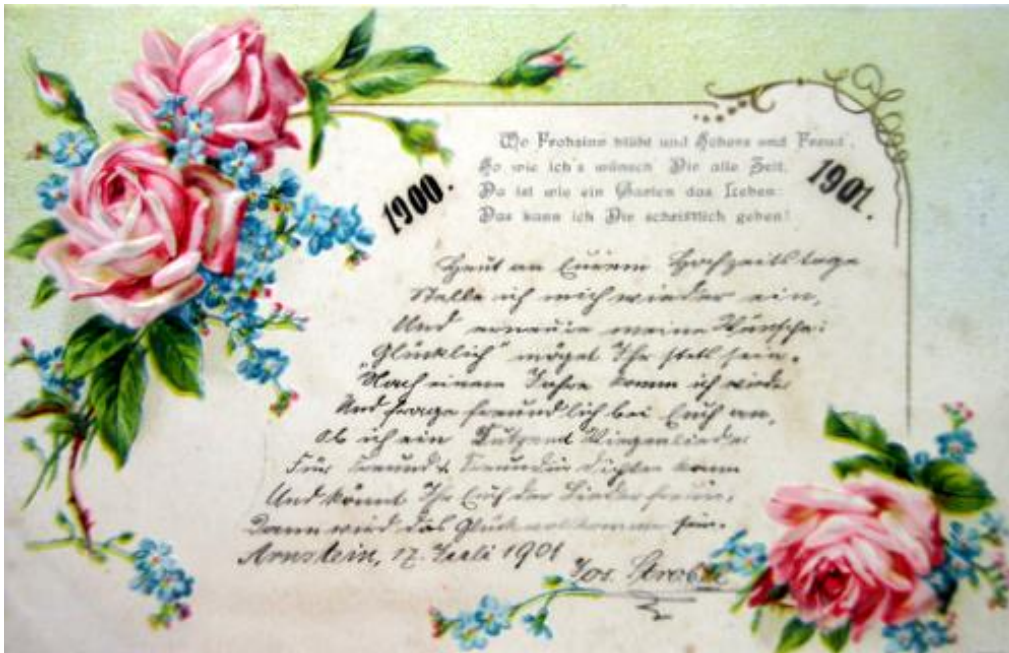 Wo Frohsinn blüht und Scherz und Freud',
So wie ich's wünsch Dir alle Zeit,
Da ist wie ein Garten das Leben:
Das kann ich Dir schriftlich geben!
1900.
1901.
Heut an Eurem Hochzeitstage
Stelle ich mich wieder ein,
Und erneure meine Wünsche:
„Glücklich" möget Ihr stets sein.
Nach einem Jahre komm ich wieder
Und frage freundlich bei Euch an,
Ob ich ein Dutzend Wiegenlieder
Für Freund & Freundin dichten kann
Und könnt Ihr Euch der Lieder freuen,
Dann wird das Glück vollkommen sein.
Arnstein, 17. Juli 1901
Jos.